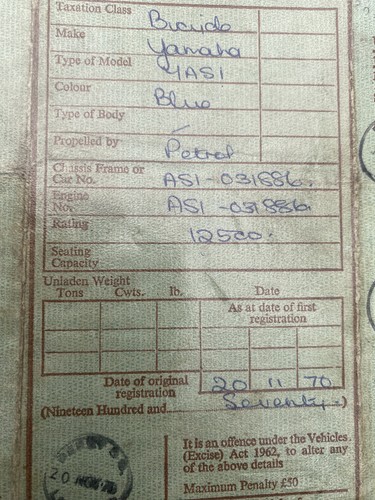 Taxation Class Bicycle
Make Yamaha
Type of Model YAS1
Colour Blue
Type of Body
Propelled by Petrol
Chassis Frame or
Car No. AS1-031886.
Engine
No. AS1-031886.
Rating 125cc.
Seating
Capacity
Unladen Weight
Tons Cwts. lb. Date
As at date of first
registration
Date of original
registration 20 11 70
(Nineteen Hundred and Seventy)
20 NOV 70
It is an offence under the Vehicles.
(Excise) Act 1962, to alter any
of the above details
Maximum Penalty £50